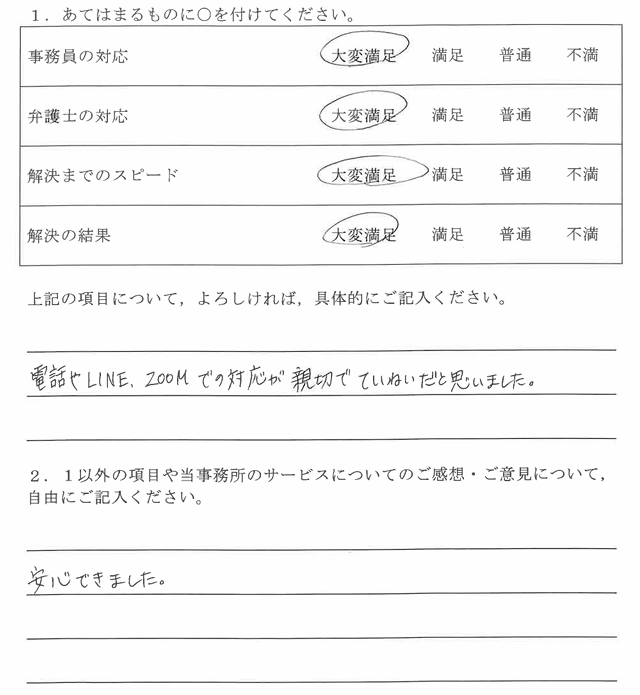 １．あてはまるものに○を付けてください。
事務員の対応 大変満足 満足 普通 不満
弁護士の対応 大変満足 満足 普通 不満
解決までのスピード 大変満足 満足 普通 不満
解決の結果 大変満足 満足 普通 不満
上記の項目について，よろしければ，具体的にご記入ください。
電話やLINE、ZOOMでの対応が親切でていねいだと思いました。
２．１以外の項目や当事務所のサービスについてのご感想・ご意見について，
自由にご記入ください。
安心できました。